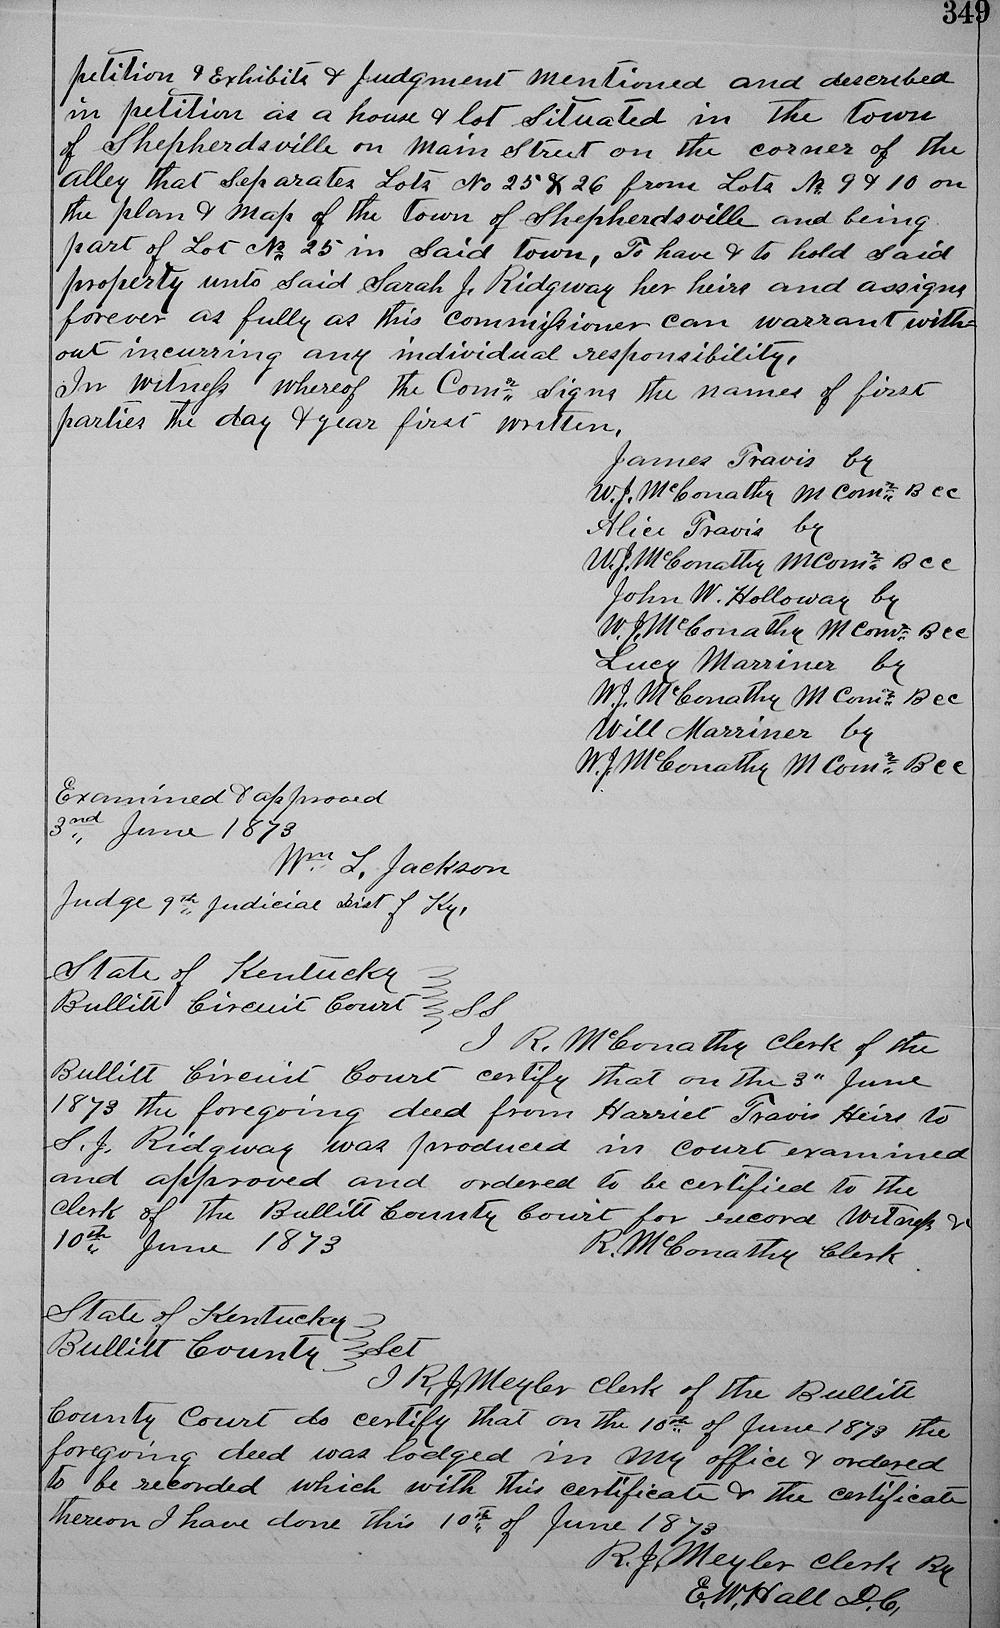 349
petition & Exhibits & Judgment mentioned and described
in petition as a house & lot situated in the town
of Shepherdsville on Main Street on the corner of the
alley that separates Lots No 25 & 26 from Lots No 9 & 10 on
the plan & Map of the town of Shepherdsville and being
part of Lot No 25 in said town, To have & to hold said
property unto said Sarah J. Ridgway her heirs and assigns
forever as fully as this commissioner can warrant with=
out incurring any individual responsibility.
In witness whereof the Comr signs the names of first
parties the day & year first written.
James Travis by
W. J. McConathy M Comr B C C
Alice Travis by
W. J. McConathy M Comr B C C
John W. Holloway by
W. J. McConathy M Comr B C C
Lucy Marriner by
W. J. McConathy M Comr B C C
Will Marriner by
W. J. McConathy M Comr B C C
Examined & approved
3nd June 1873
Wm L. Jackson
Judge 9th Judicial Dist of Ky.
State of Kentucky
Bullitt Circuit Court SS
I R. McConathy Clerk of the
Bullitt Circuit Court certify that on the 3" June
1873 the foregoing deed from Harriet Travis Heirs to
S. J. Ridgway was produced in court examined
and approved and ordered to be certified to the
clerk of the Bullitt County Court for record Witness &
10th June 1873 R. McConathy Clerk
State of Kentucky
Bullitt County Sct
I R. J. Meyler Clerk of the Bullitt
County Court do certify that on the 10th of June 1873 the
foregoing deed was lodged in my office & ordered
to be recorded which with this certificate & the certificate
thereon I have done this 10th of June 1873
R. J. Meyler Clerk By
E. W. Hall D. C.